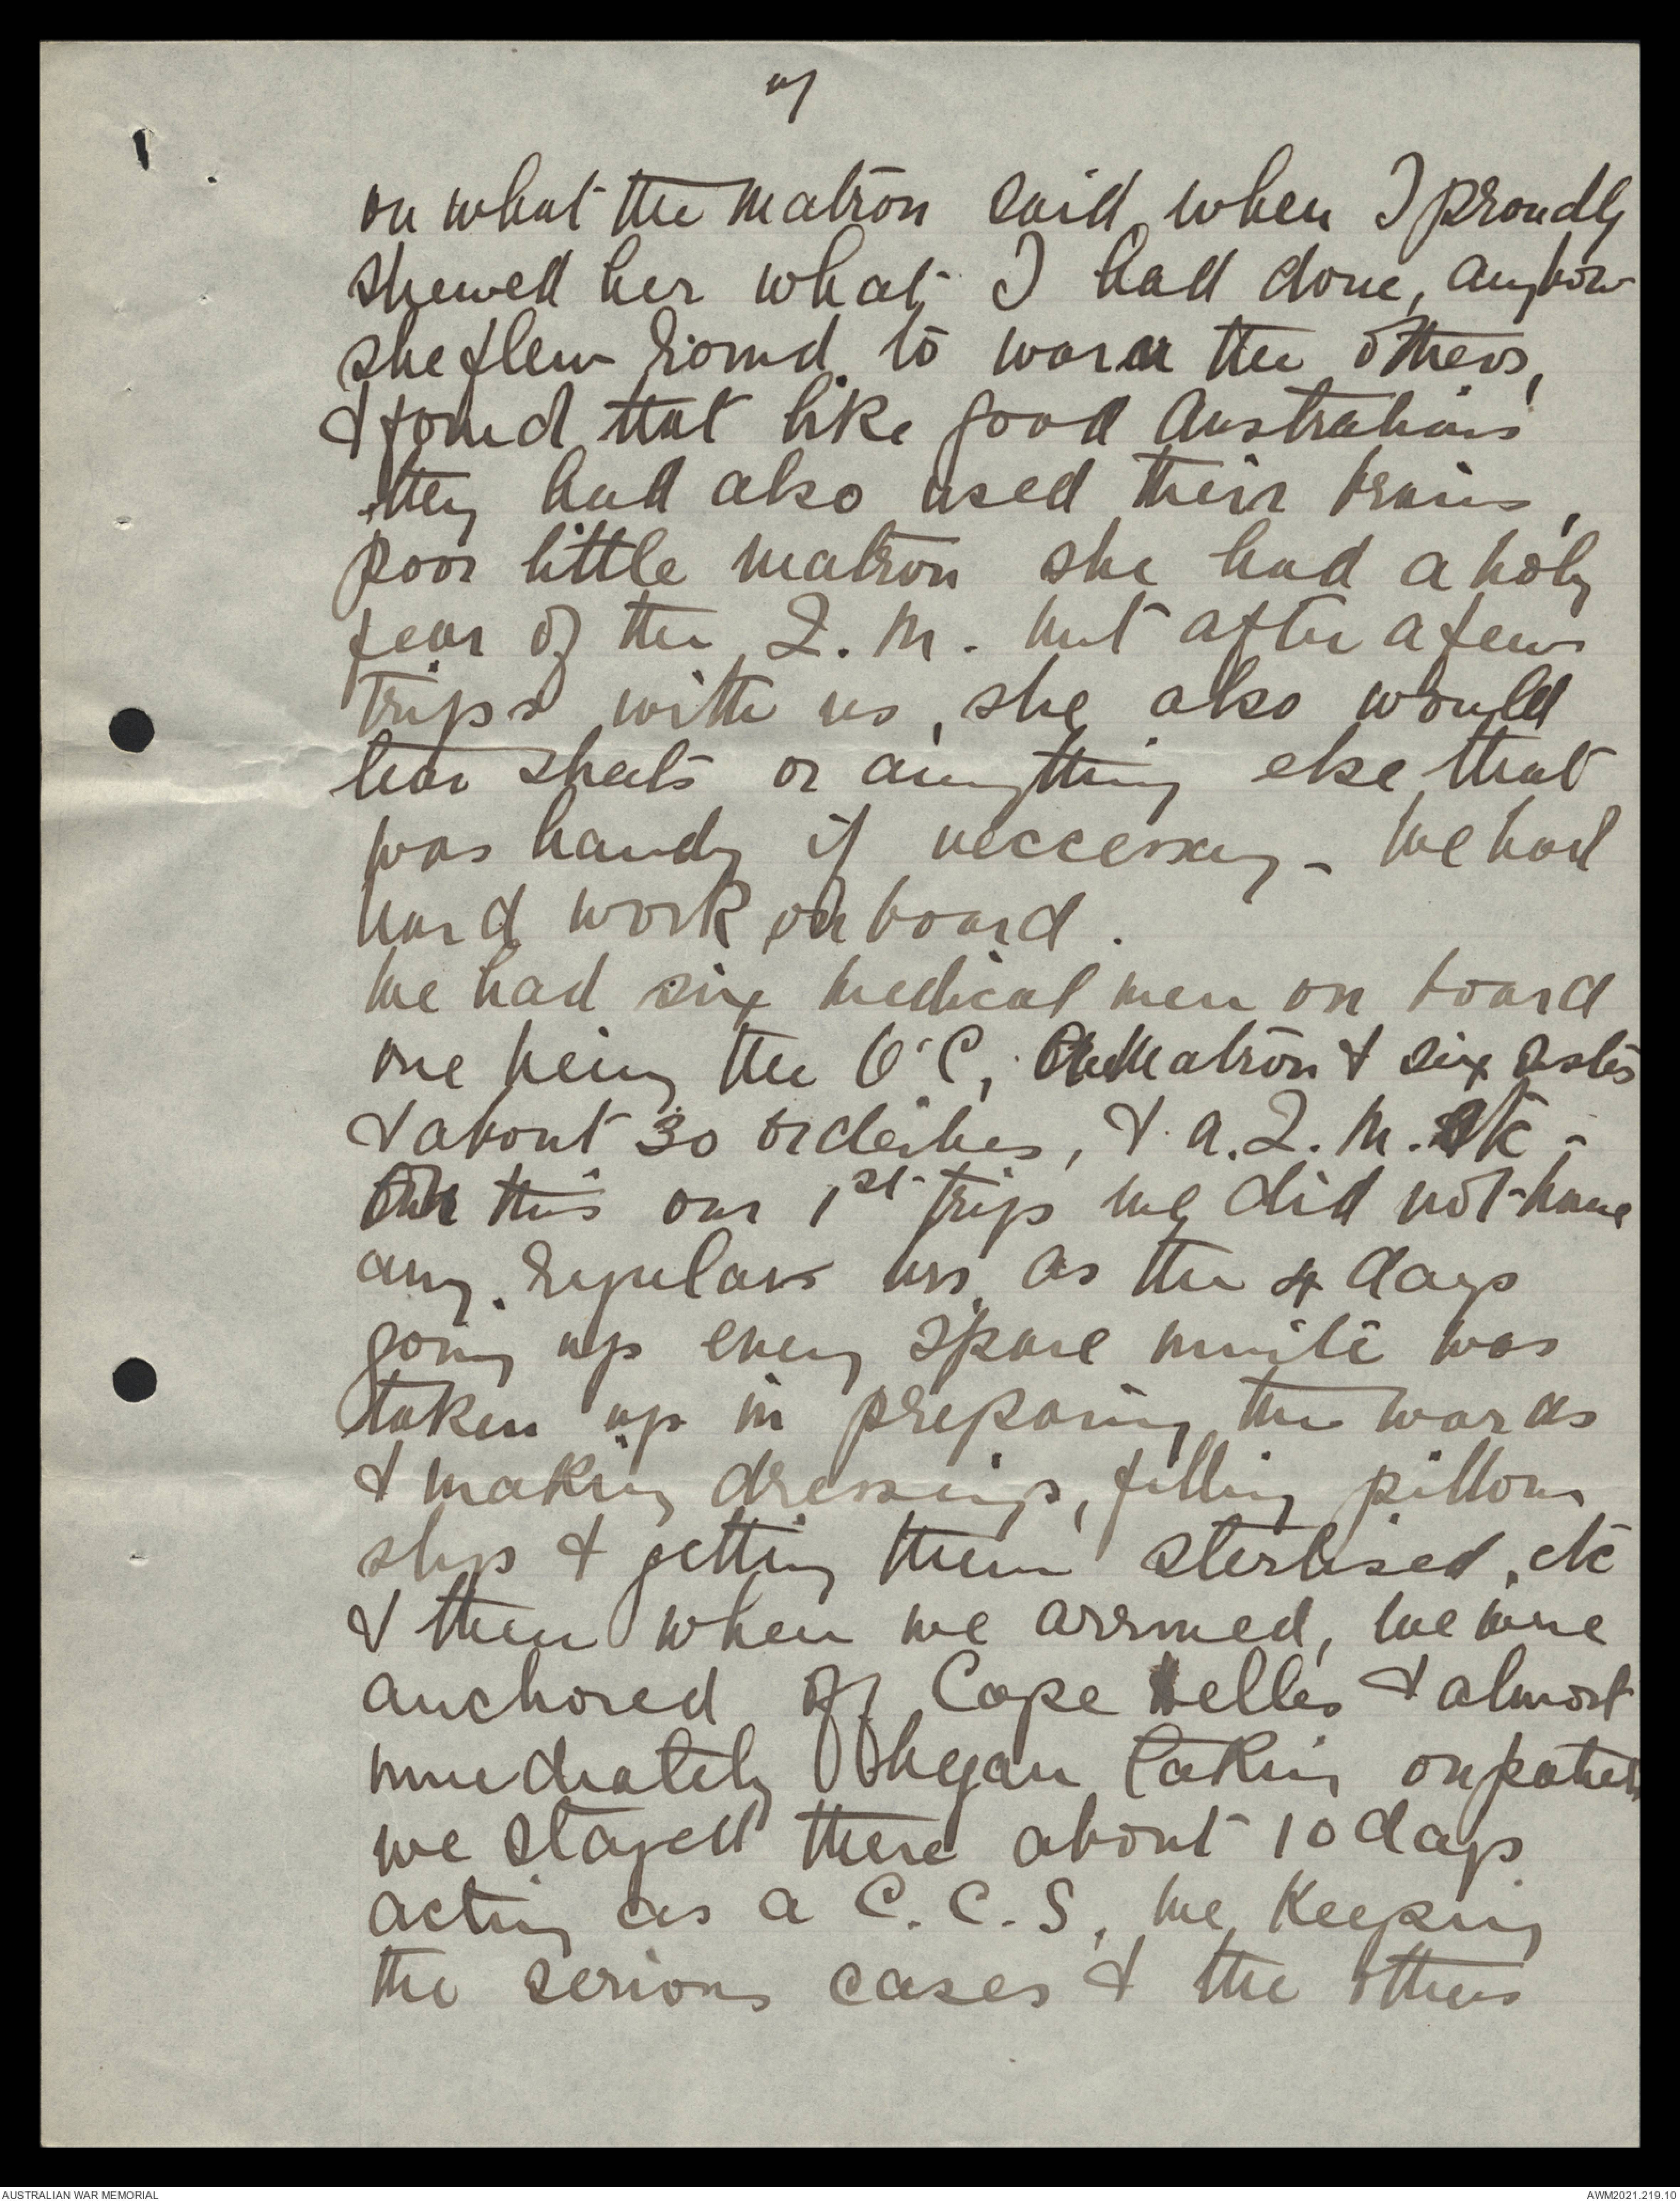 on what the Matron said when I proudly
shewed her what I had done, anyhow
she flew round to warn the others,
& found that like good Australians
they had also used their brains,
poor little matron she had a holy
fear of the Q. M. but after a few
trips with us, she also would
tear sheets or anything else that
was handy if neccessary - We had
hard work on board.
We had six medical men on board
one being the O'C, Matron & six sisters
& about 30 orderlies, & a. Q. M. etc -
On this our 1st trip we did not have
any regular hrs, as the 4 days
going up every spare minite was
taken up in preparing the wards
& making dressings, filling pillow
slips & getting them sterlised, etc
& then when we arrived, we were
anchored off Cape Helles & almost
immediately began taking on patients
we stayed there about 10 days
acting as a C. C. S, we keeping
the serious cases & the others
AUSTRALIAN WAR MEMORIAL
AWM2021.219.10